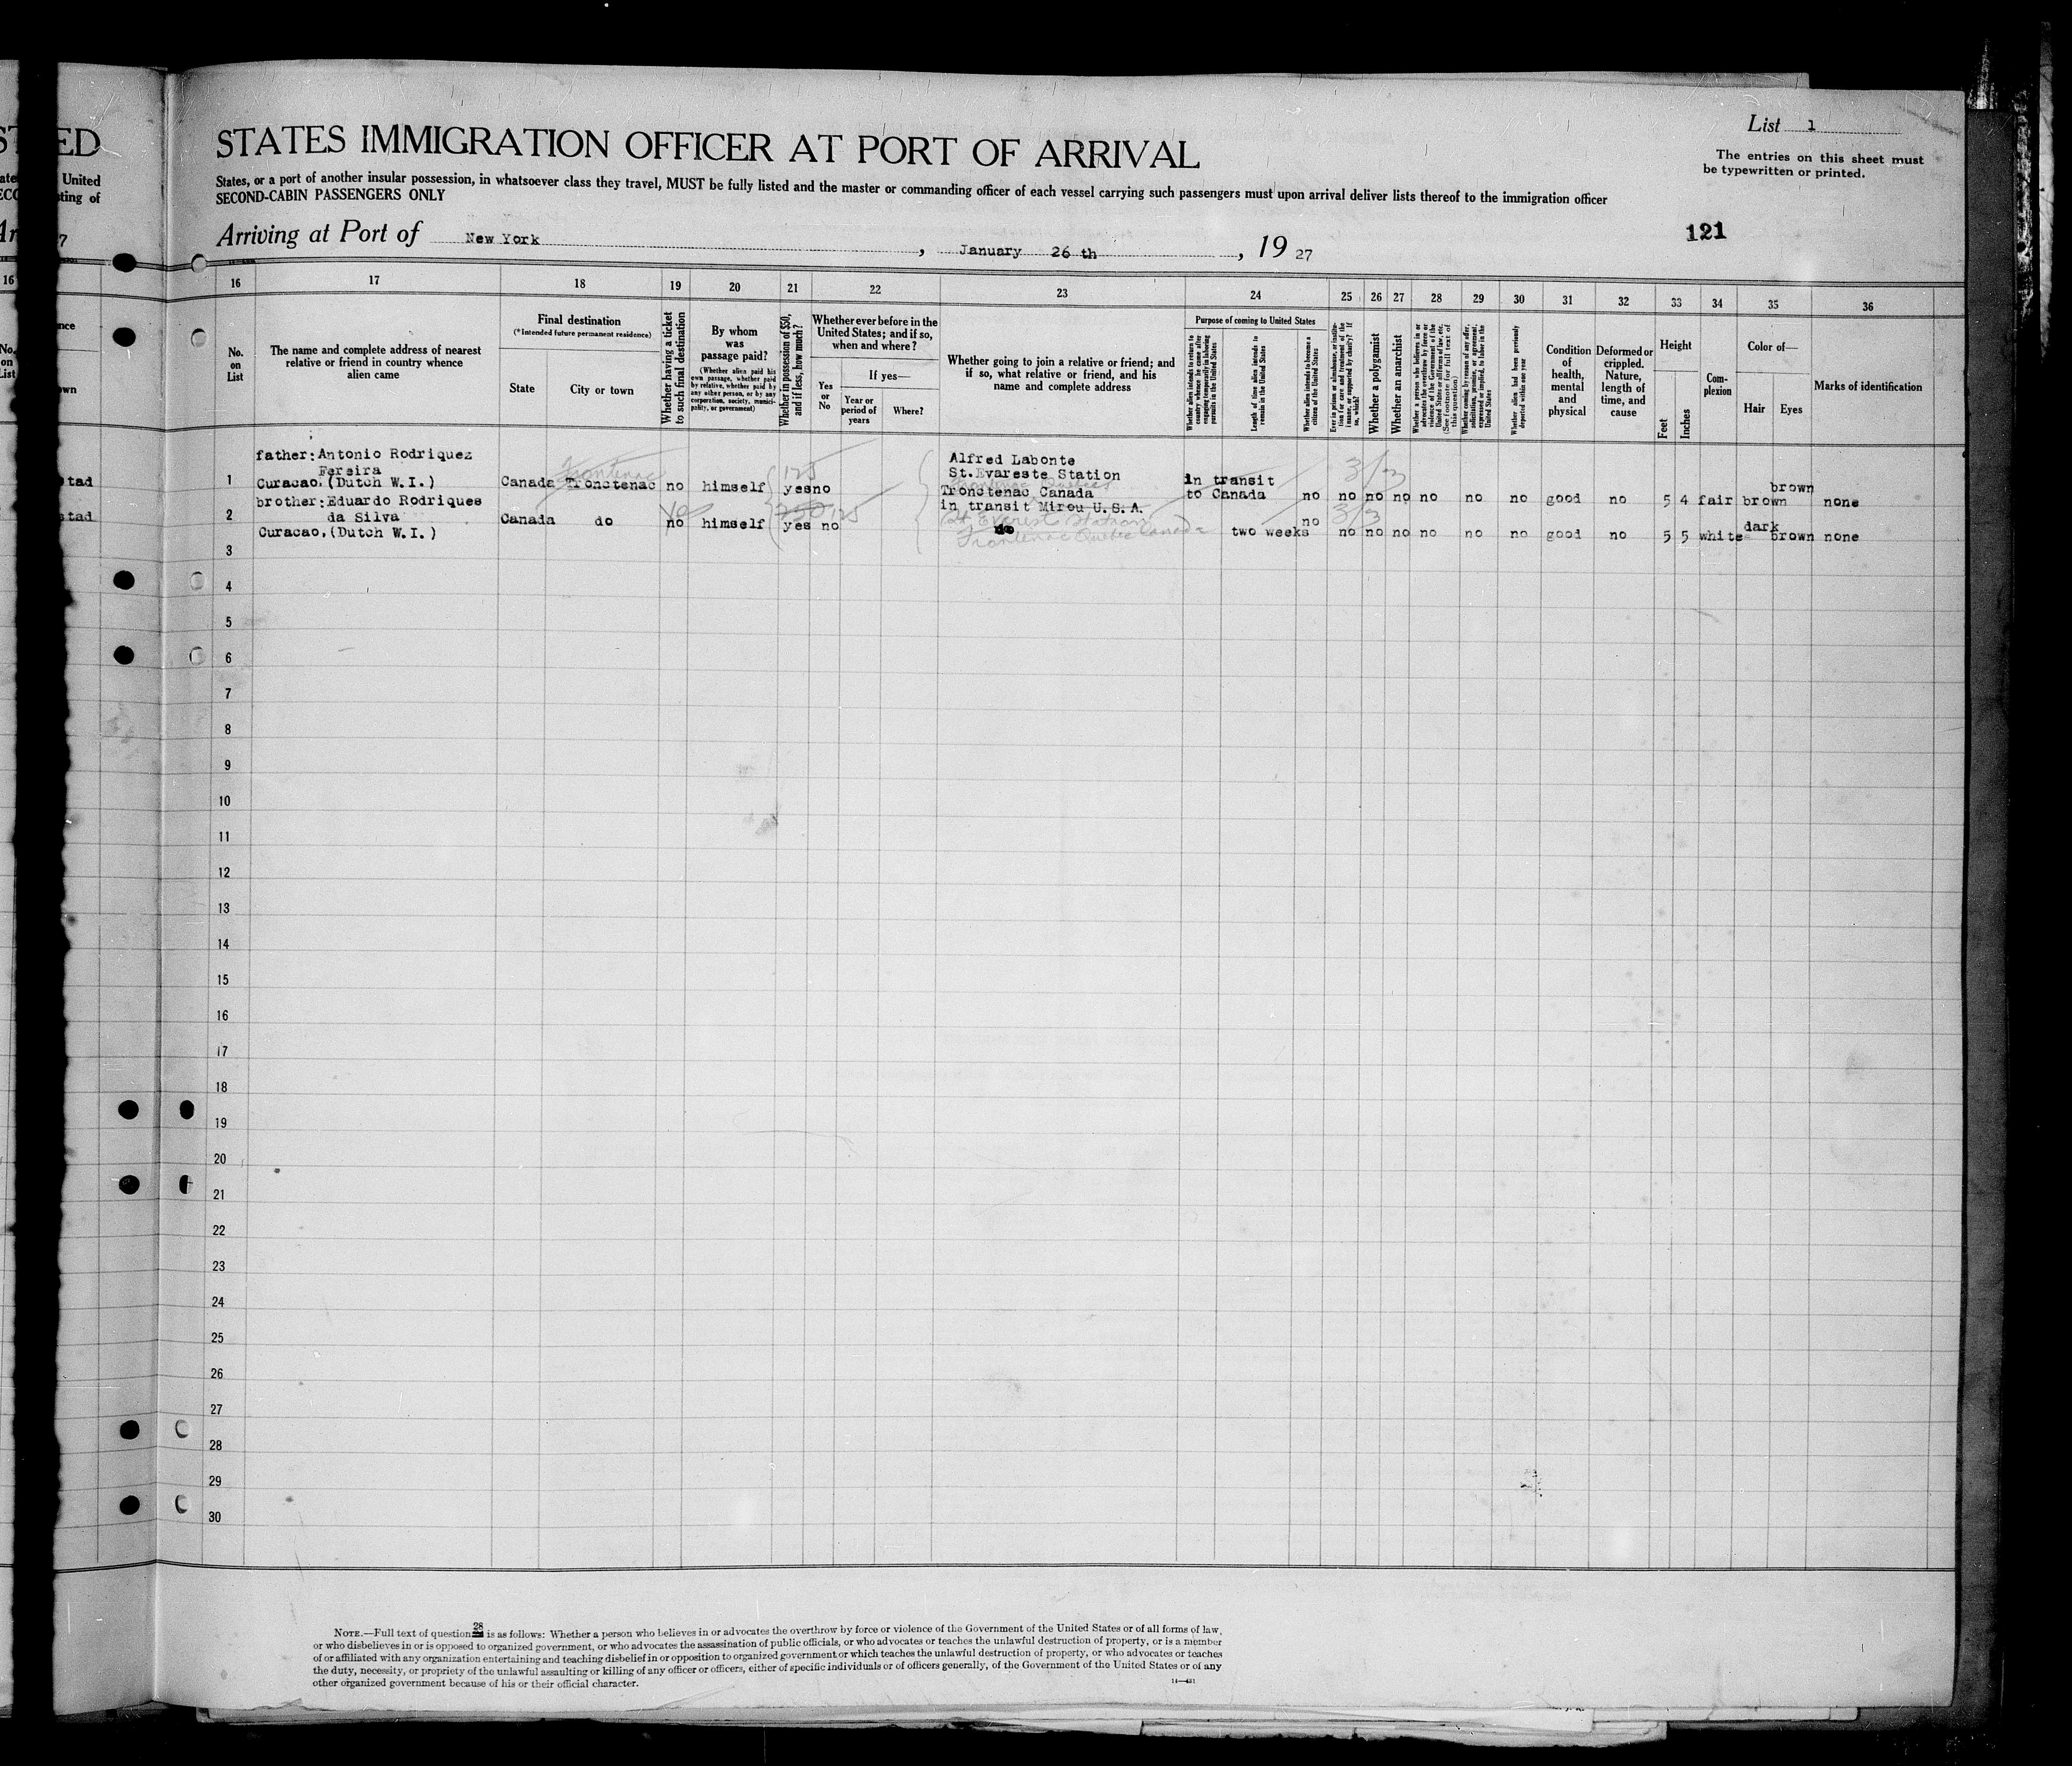 ST
ED
ate
United
SECO
sting of
Ar
7
16
nce
No.
on
List
own
tad
stad
List 1
The entries on this sheet must
be typewritten or printed.
STATES IMMIGRATION OFFICER AT PORT OF ARRIVAL
States, or a port of another insular possession, in whatsoever class they travel, MUST be fully listed and the master or commanding officer of each vessel carrying such passengers must upon arrival deliver lists thereof to the immigration officer
SECOND-CABIN PASSENGERS ONLY
121
Arriving at Port of New York, January 26 th, 19 27
16 17 18 19 20 21 22 23 24 25 26 27 28 29 30 31 32 33 34 35 36
No.
on
List
The name and complete address of nearest
relative or friend in country whence
alien came
Final destination
(*Intended future permanent residence)
State
City or town
Whether having a ticket
to such final destination
By whom
was
passage paid?
(Whether alien paid his
own passage, whether paid
by relative, whether paid by
any other person, or by any
corporation, society, munici-
pality, or government)
Whether in possession of $50,
and if less, how much?
Whether ever before in the
United States; and if so,
when and where?
Yes
or
No
If yes—
Year or
period of
years
Where?
Whether going to join a relative or friend; and
if so, what relative or friend, and his
name and complete address
Purpose of coming to United States
Whether alien intends to return to
country whence he came after
engaging temporarily in laboring
pursuits in the United States
Length of time alien intends to
remain in the United States
Whether alien intends to become a
citizen of the United States
Ever in prison or almshouse, or institu-
tion for care and treatment of the
insane, or supported by charity? If
so, which?
Whether a polygamist
Whether an anarchist
Whether a person who believes in or
advocates the overthrow by force or
violence of the Government of the
United States or all forms of law, etc.
(See footnote for full text of
this question)
Whether coming by reason of any offer,
solicitation, promise, or agreement,
expressed or implied, to labor in the
United States
Whether alien had been previously
deported within one year
Condition
of
health,
mental
and
physical
Deformed or
crippled.
Nature,
length of
time, and
cause
Height
Feet
Inches
Com-
plexion
Color of—
Hair
Eyes
Marks of identification
father: Antonio Rodriquez
Fereira
1 Curacao. (Dutch W.I.) Canada Tronctenac no himself yes no
Frontenac
125
Alfred Labonte
St. Evareste Station
Tronctenac Canada
in transit Mirou U.S.A.
in transit
to Canada no no no no no no no good no 5 4 fair brown brown none
3/3
brother: Eduardo Rodriques
2 da Silva
Curacao, (Dutch W.I.) Canada do no himself yes no
yes
250 125
do
St Everest Station
Frontenac Quebec Canada
two weeks no no no no no no no good no 5 5 white dark brown none
3/3
3
4
5
6
7
8
9
10
11
12
13
14
15
16
17
18
19
20
21
22
23
24
25
26
27
28
29
30
NOTE.—Full text of question 28 is as follows: Whether a person who believes in or advocates the overthrow by force or violence of the Government of the United States or of all forms of law,
or who disbelieves in or is opposed to organized government, or who advocates the assassination of public officials, or who advocates or teaches the unlawful destruction of property, or is a member
of or affiliated with any organization entertaining and teaching disbelief in or opposition to organized government or which teaches the unlawful destruction of property, or who advocates or teaches
the duty, necessity, or propriety of the unlawful assaulting or killing of any officer or officers, either of specific individuals or of officers generally, of the Government of the United States or of any
other organized government because of his or their official character.
14—431